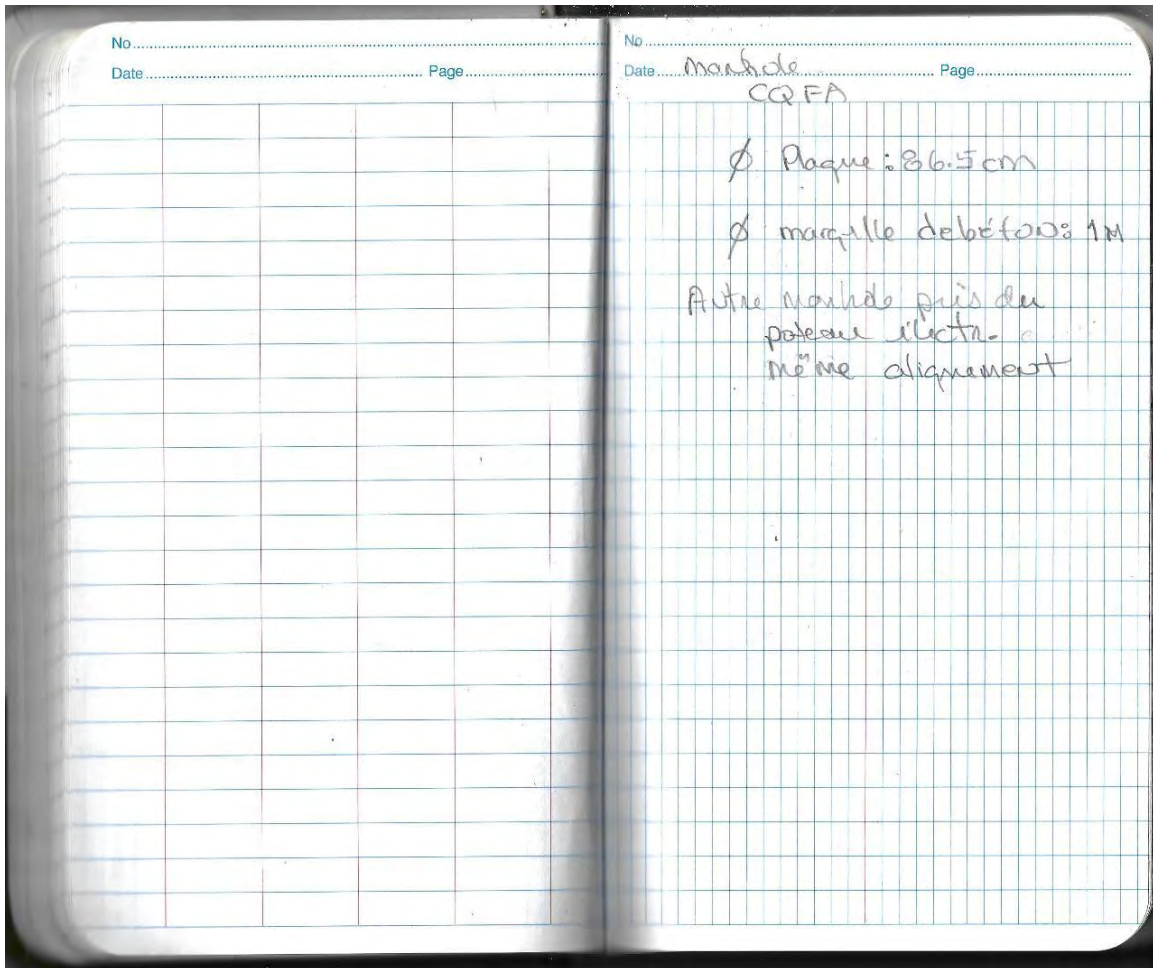 No
Date Page
No
Date Manhole Page
CQFA
Ø Plaque : 86.5 cm
Ø margille de béton : 1M
Autre manhole près du
poteau électr.
même alignement